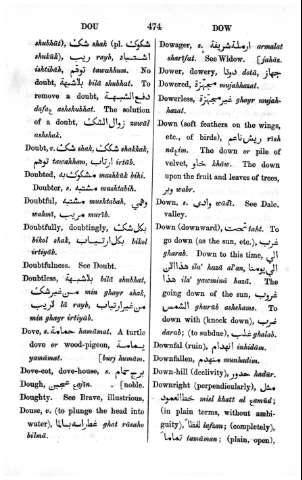 DOU 474 DOW
shubhāt), شك shak (pl. شكوك
shukūk), ريب rayb, اشتباه
ishtibāh, توهم tawahhum. No
doubt, بلا شبهة bilā shubhat. To
remove a doubt, دفع الشبهة
dafa ashshubhat. The solution
of a doubt, زوال الشك zuwāl
ashshak.
Doubt, v. شك shak, شكك shakkak,
توهم tawahham, ارتاب irtāb.
Doubted, مشكوك به mashkūk bihi.
Doubter, s. مشتبه mushtabih.
Doubtful, مشتبه mushtabah, وهمي
wahmī, مريب murīb.
Doubtfully, doubtingly, بكل شك
bikol shak, بكل ارتياب bikol
irtiyāb.
Doubtfulness. See Doubt.
Doubtless, بلا شبهة bilā shubhat,
من غير شك min ghayr shak,
لا ريب lā rayb, من غير ارتياب
min ghayr irtiyāb.
Dove, s. حمامة hamāmat. A turtle
dove or wood-pigeon, يمامة
yamāmat. [burj humām.
Dove-cot, dove-house, s. برج حمام
Dough, عجين aajīn. [noble.
Doughty. See Brave, illustrious,
Douse, v. (to plunge the head into
water), غط راسه بالما ghat rāsaho
bilmā.
Dowager, s. ارملة شريفة armalat
sharīfat. See Widow. [jahāz.
Dower, dowery, دوتا dota, جهاز
Dowered, مجهزة mujahhazat.
Dowerless, غير مجهزة ghayr mujah-
hazat.
Down (soft feathers on the wings,
etc., of birds), ريش ناعم rīsh
nāaim. The down or pile of
velvet, خاو khāw. The down
upon the fruit and leaves of trees,
وبر wabr.
Down, s. وادي wādī. See Dale,
valley.
Down (downward), تحت taht. To
go down (as the sun, etc.), غرب
gharab. Down to this time, الي
هذا الان ila' hazā al'an, الي يومنا
هذا ila' yawminā hazā. The
going down of the sun, غروب
الشمس ghurūb ashshams. To
down with (knock down), ضرب
darab; (to subdue), غلب ghalab.
Downfal (ruin), انهدام inhidām.
Downfallen, منهدم munhadim.
Down-hill (declivity), حدور hadūr.
Downright (perpendicularly), مثل
خط العمود misl khatt al aamūd;
(in plain terms, without ambi-
guity), لفظا lafzan; (completely),
تماما tamāman; (plain, open),